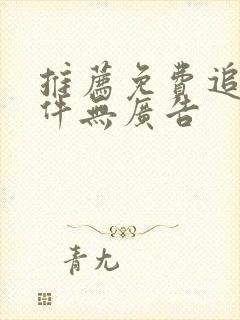 推薦免費追
件無廣告
青尤